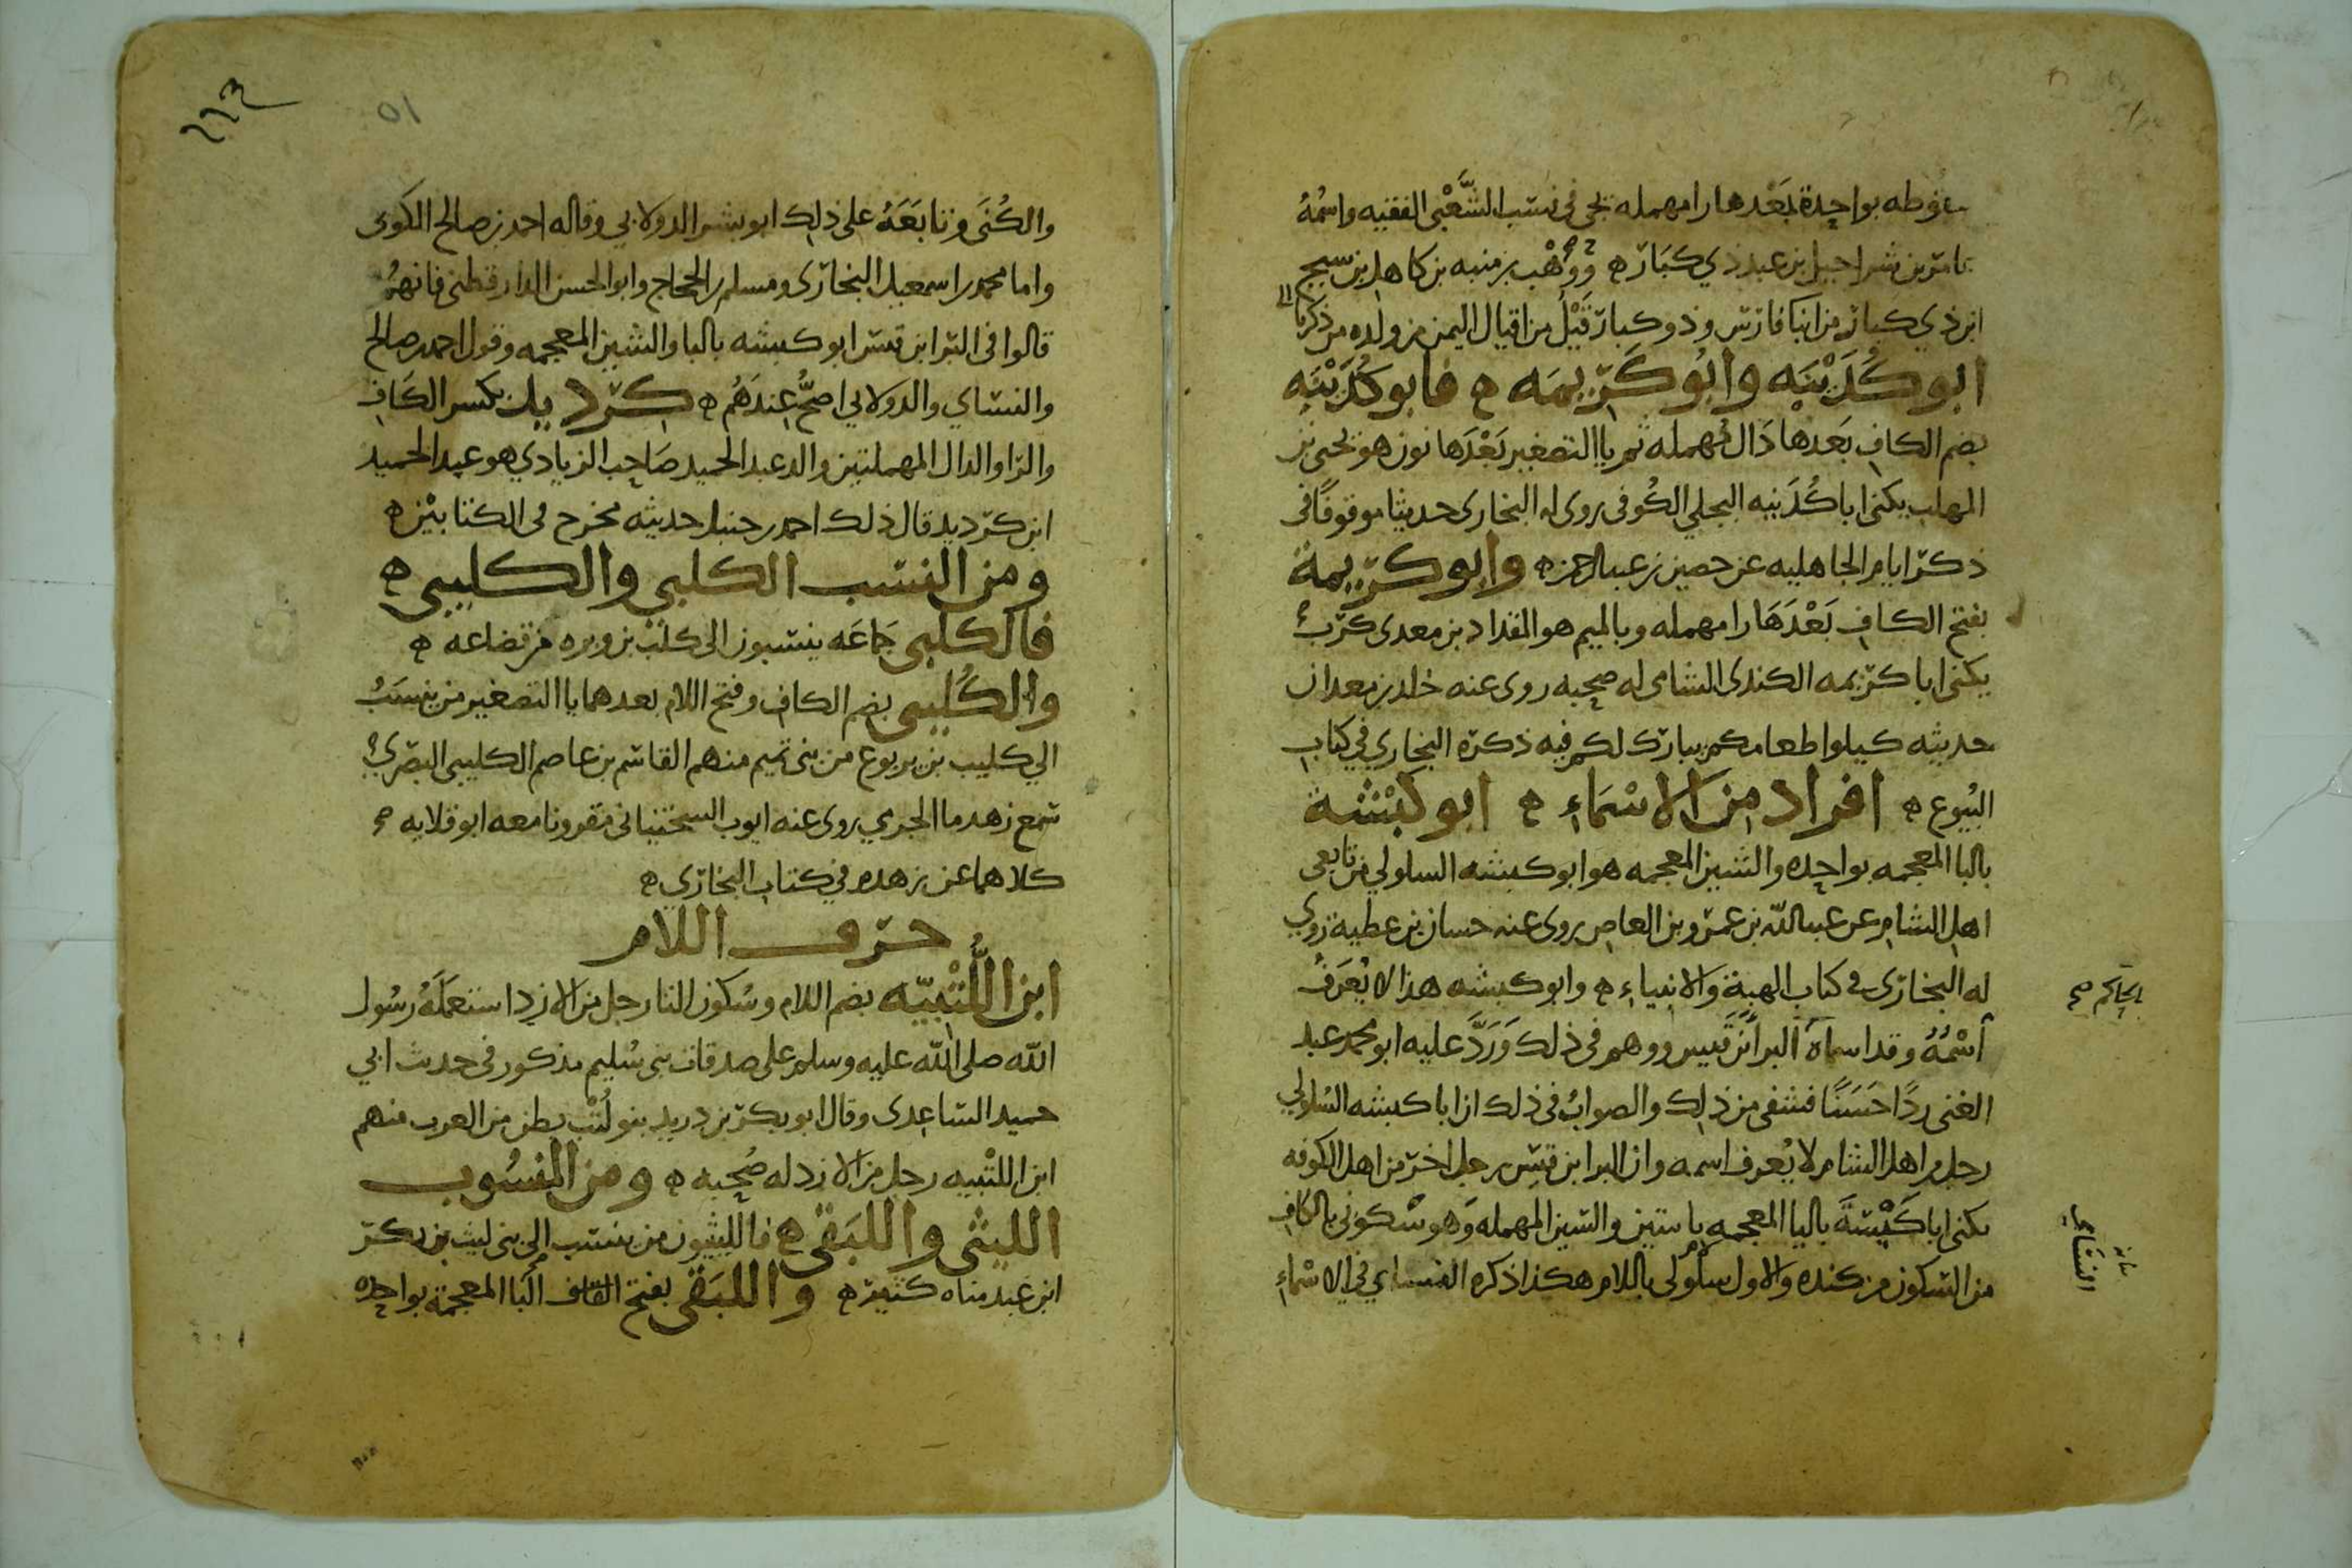 منقوطه بواحدة بعدها را مهمله يجى فى نسب الشَّعْبى الفقيه واسمُهُ
عامر بن شراحيل بن عبد ذي كبَار ه ووَهْب بن منبه بن كامل بن سيج
ابن ذي كبار من ابنا فارس وذو كبار قَيْلٌ من اقيال اليمن من ولده من ذكرنا
ابو كُدَيْنَه وابُو كَرِيمَه ه فابو كُدَيْنَه
بضم الكاف بَعدها دَال مهمله ثم يا التصغير بَعْدَها نون هو يحيى بن
المهلب يكنى ابا كُدَينه البجلي الكُوفى روى له البخارى حديثا موقوفًا فى
ذكر ايام الجاهليه عن حصين بن عبد الرحمن ه وابو كريمة
بفتح الكاف بَعْدَهَا را مهمله وبالميم هو المقداد بن معدى كرب
يكنى ابا كريمه الكندى الشامى له صحبه روى عنه خلد بن معدان
حديثه كيلوا طعامكم يبارك لكم فيه ذكره البخاري في كتاب
البُيوع ه افراد من الاسْمَاءِ ه ابو كبْشة
بالبا المعجمه بواحده والشين المعجمه هو ابو كبشه السلولي من تابعى
اهل الشام عن عبد الله بن عمرو بن العاص روى عنه حسان بن عطية روي
له البخارى فى كتاب الهبة وَالانبياءِ ه وابو كبشه هذا لا يُعرَفُ
الحاكم صح
اسْمُهُ وقد اسماه البرا بن قيس ووهم فى ذلك وَرَدَّ عليه ابو محمد عبد
الغنى ردًا حَسَنًا فشفى من ذلك والصوابُ فى ذلك ان ابا كبشه السلولي
رجل من اهل الشام لا يُعرف اسمه وان البرا بن قيس رجل اخر من اهل الكوفه
يكنى ابا كَيْسَةَ باليا المعجمه باثنين والسين المهمله وَهو سْكونى بالكاف
من السكون من كنده والاول سلُولى باللام هكذا ذكره النسـاي في الاسْماءِ
النسَاي
بيانه
٢٢٣
٥١
والكُنَى وتابَعَهُ على ذلك ابو بشر الدولابي وقاله احمد بن صالح الكوفى
واما محمد بن اسمعيل البخارى ومسلم بن الحجاج وابو الحسن الدارقطنى فانهم
قالوا فى البرا بن قيس ابو كبشه بالبا والشين المعجمه وقول احمد بن صالح
والنسَاي والدولابي اصحُّ عِندَهُم ه كرديد بكسر الكَافِ
والرا والدال المهملتين والد عبد الحميد صَاحِب الزيادي هو عبد الحميد
ابن كرديد قال ذلك احمد بن حنبل حديثه مخرج فى الكتابيْن ه
ومن النسَب الكلبي والكليبى ه
فالكلبى جَماعَه ينتسبون الى كلْب بن وبره من قضاعه ه
والكُليبى بضم الكاف وفتح اللام بعدهما يا التصغير من ينسَبُ
الي كليب بن يربوع من بنى تميم منهم القاسم بن عاصم الكليبى البَصْرِي
سمع زهدما الجرمي روى عنه ايوب السختيانى مقرونا معه ابو قلابه
كلاهما عن زهدم في كتاب البخارى ه
حرف اللام
ابن اللُّتْبِيّه بضم اللام وسُكون التا رجل من الازد استعمَلَهُ رسُول
الله صلى الله عليه وسلم على صدقات بنى سُليم مذكور فى حديث ابي
حميد السَاعِدى وقال ابو بكر بن دريد بنو لُتْب بطن من العرب منهم
ابن اللتْبيه رجل من الازد له صُحبه ه ومن المنسُوب
الليثى واللبَقى ه فالليثيون من ينسَب الى بنى ليث بن بكر
ابن عبد مناه كثير ه واللبَقى بفتح القاف البَا المعجمة بواحده